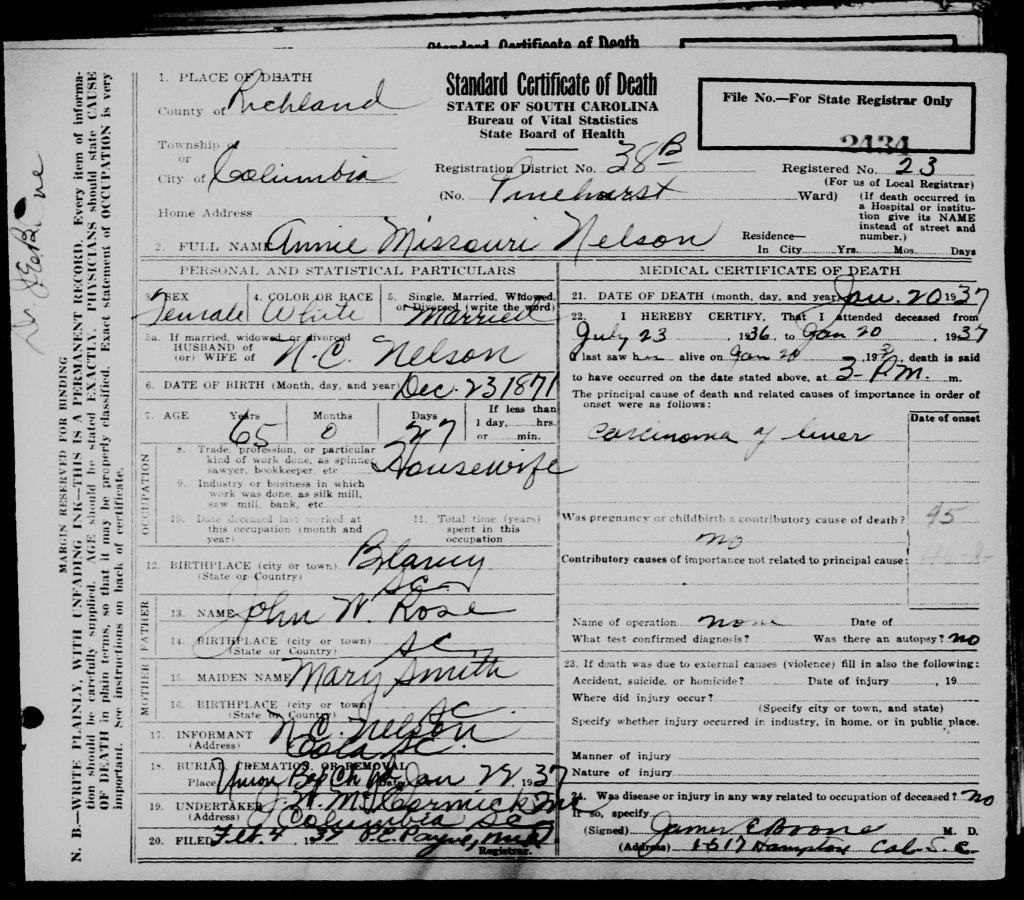 Standard Certificate of Death
1. PLACE OF DEATH
County of Richland
Township of
or
City of Columbia
Home Address
Standard Certificate of Death
STATE OF SOUTH CAROLINA
Bureau of Vital Statistics
State Board of Health
Registration District No. 38B
(No. Pinehurst Ward)
File No.—For State Registrar Only
2434
Registered No. 23
(For us of Local Registrar)
(If death occurred in
a Hospital or institu-
tion give its NAME
instead of street and
number.)
2. FULL NAME Annie Missouri Nelson
Residence—
In City Yrs. Mos. Days
PERSONAL AND STATISTICAL PARTICULARS
3. SEX Female
4. COLOR OR RACE White
5. Single, Married, Widowed,
or Divorced (write the word) Married
5a. If married, widowed or divorced
HUSBAND of
(or) WIFE of N.C. Nelson
6. DATE OF BIRTH (Month, day, and year) Dec. 23 1871
7. AGE Years 65 Months 0 Days 27
If less than
1 day, hrs.
or min.
OCCUPATION
8. Trade, profession, or particular
kind of work done, as spinner,
sawyer, bookkeeper, etc Housewife
9. Industry or business in which
work was done, as silk mill,
saw mill, bank, etc.
10. Date deceased last worked at
this occupation (month and
year)
11. Total time (years)
spent in this
occupation
12. BIRTHPLACE (city or town) Blaney
(State or Country) SC
FATHER
13. NAME John W. Rose
14. BIRTHPLACE (city or town)
(State or Country) SC
MOTHER
15. MAIDEN NAME Mary Smith
16. BIRTHPLACE (city or town)
(State or Country) SC.
17. INFORMANT N.C. Nelson
(Address) Cola SC.
18. BURIAL, CREMATION, OR REMOVAL
Place Union Bap Ch Date Jan 22 1937
19. UNDERTAKER J. W. McCormick Inc
(Address) Columbia SC
20. FILED Feb. 4, 1937 Payne,
Registrar.
MEDICAL CERTIFICATE OF DEATH
21. DATE OF DEATH (month, day, and year) Jan. 20 1937
22. I HEREBY CERTIFY, That I attended deceased from
July 23, 1936, to Jan 20, 1937
I last saw her alive on Jan 20, 1937, death is said
to have occurred on the date stated above, at 3 - P.M. m.
The principal cause of death and related causes of importance in order of
onset were as follows:
Date of onset
Carcinoma of liver
Was pregnancy or childbirth a contributory cause of death?
no
Contributory causes of importance not related to principal cause:
Name of operation none Date of
What test confirmed diagnosis? Was there an autopsy? no
23. If death was due to external causes (violence) fill in also the following:
Accident, suicide, or homicide? Date of injury , 19
Where did injury occur?
(Specify city or town, and state)
Specify whether injury occurred in industry, in home, or in public place.
Manner of injury
Nature of injury
24. Was disease or injury in any way related to occupation of deceased? no
If so, specify
(Signed) James E Boone M. D.
(Address) 1517 Hampton Col - S. C.
MARGIN RESERVED FOR BINDING
N. B.—WRITE PLAINLY, WITH UNFADING INK—THIS IS A PERMANENT RECORD. Every item of informa-
tion should be carefully supplied. AGE should be stated EXACTLY. PHYSICIANS should state CAUSE
OF DEATH in plain terms, so that it may be properly classified. Exact statement of OCCUPATION is very
important. See instructions on back of certificate.